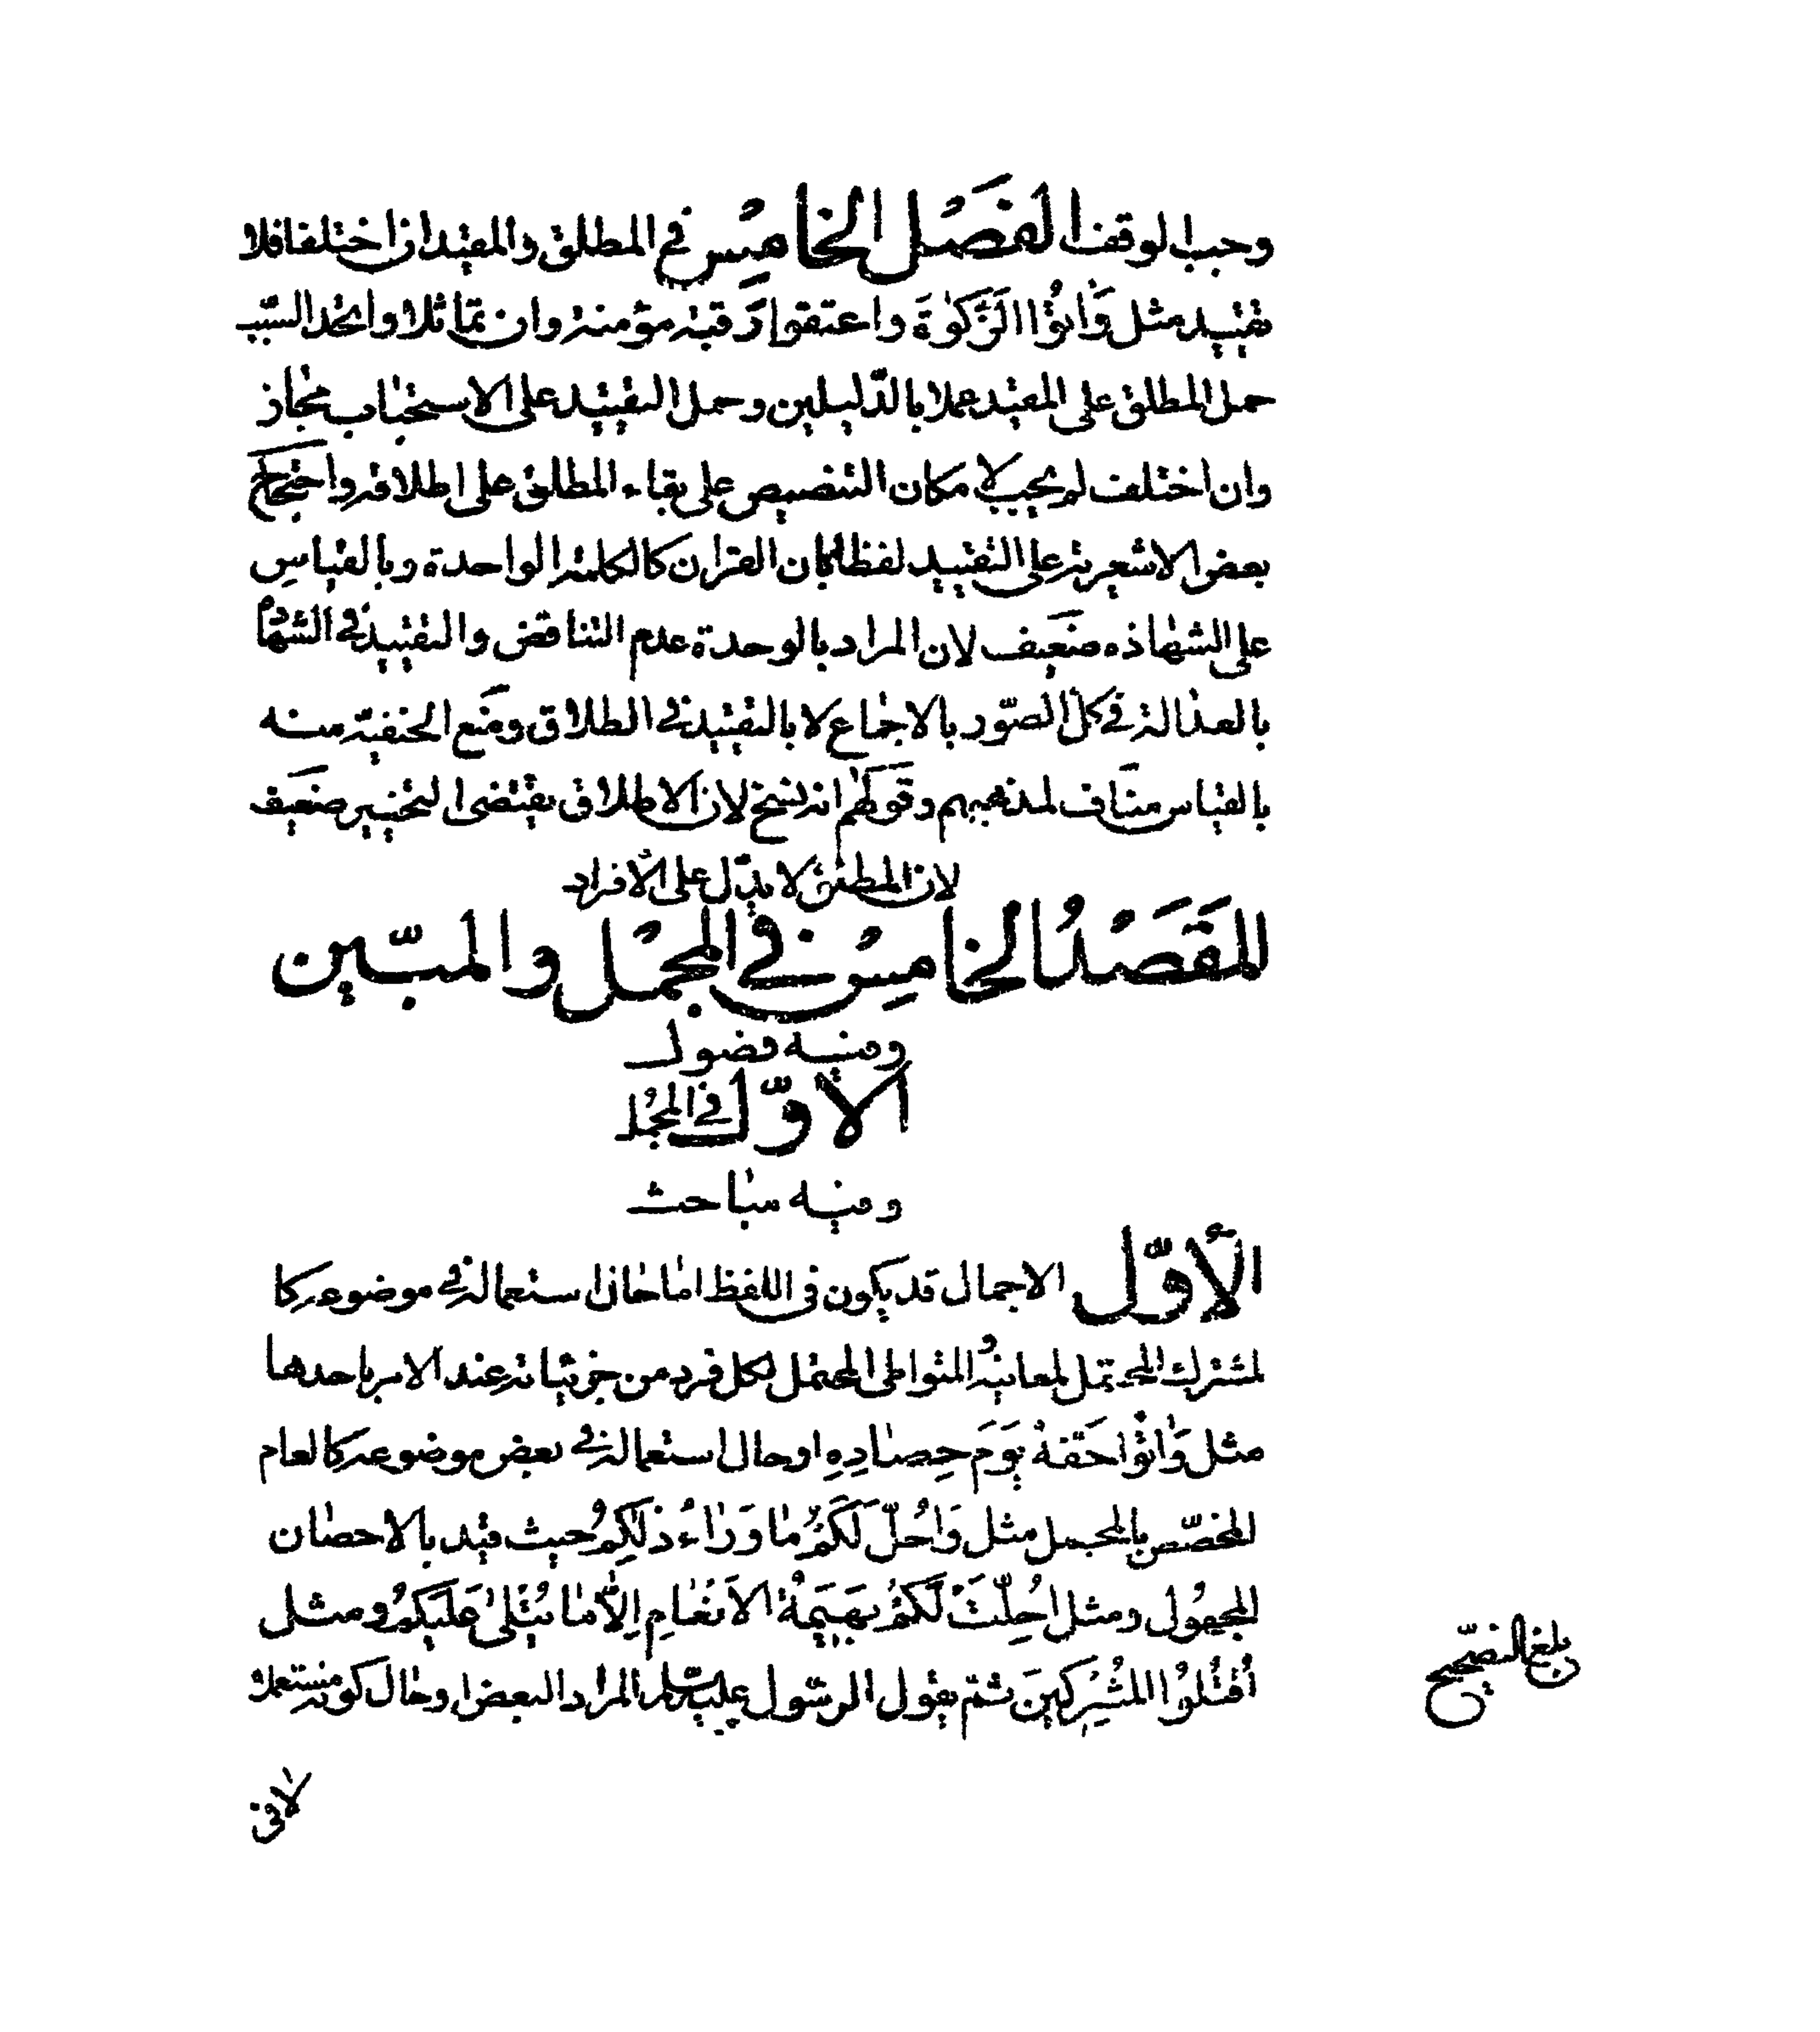 وجب الوقف الفَصْل الخامِسُ في المطلق والمقيد ان اختلفا فلا
تقييد مثل وَاٰتوُا الزَّكوٰةَ واعتقوا رَقبة مؤمنة وان تماثلا واتحد السّبب
حمل المطلق على المقيد عملا بالدّليلين وحمل التقييد على الاستحباب مجاز
وان اختلف لم يجب لامكان التنصيص على بقاء المطلق على اطلاقه واحتجاج
بعض الاشعرية على التقييد لفظا بان القرآن كالكلمة الواحدة وبالقياسِ
على الشهادة ضَعيف لان المراد بالوحدة عدم التناقض والتقييد في الشهادة
بالعدالة في كل الصّور بالاجماع لا بالتقييد في الطلاق ومَنع الحنفيّة منه
بالقياس منَاف لمذهبهم وقَولهم انه نسخ لان الاطلاق يقتضى التخيير ضَعيف
لان المطلق لا يدّل على الأفراد
المقَصَدُ الخامِسُ في المجمْل والمبّين
وفيه فصول
الاوّل في المجْمُل
وفيه مباحث
الأوّل الاجمال قد يكون فى اللفظ اما حال استعماله في موضوعه كا
لمشترك المحتمل لمعانيهُ المتواطى المحتمل لكل فرد من جزئياته عند الامر باحدها
مثل وَاٰتوُا حَقّهُ يَومَ حِصٰادِهِ او حال استعماله في بعض موضوعه كالعام
المخصّص بالمجمل مثل وَاُحُلّ لَكُمْ مٰا وَرٰاءَ ذٰلِكُمْ حيث قيد بالاحصان
المجهوُل ومثل اُحِلّتَ لَكُمْ بَهَيَمةُ الاَنعٰامِ اِلاّٰ مٰا يُتْلىٰ عَلَيكمُ ومثل
اُقْتُلوُا المُشْرِكينَ ثمّ يقول الرسّول عليه السّلام المراد البعض او حال كونه مستعملا
لا في
بلغ التصّحيح